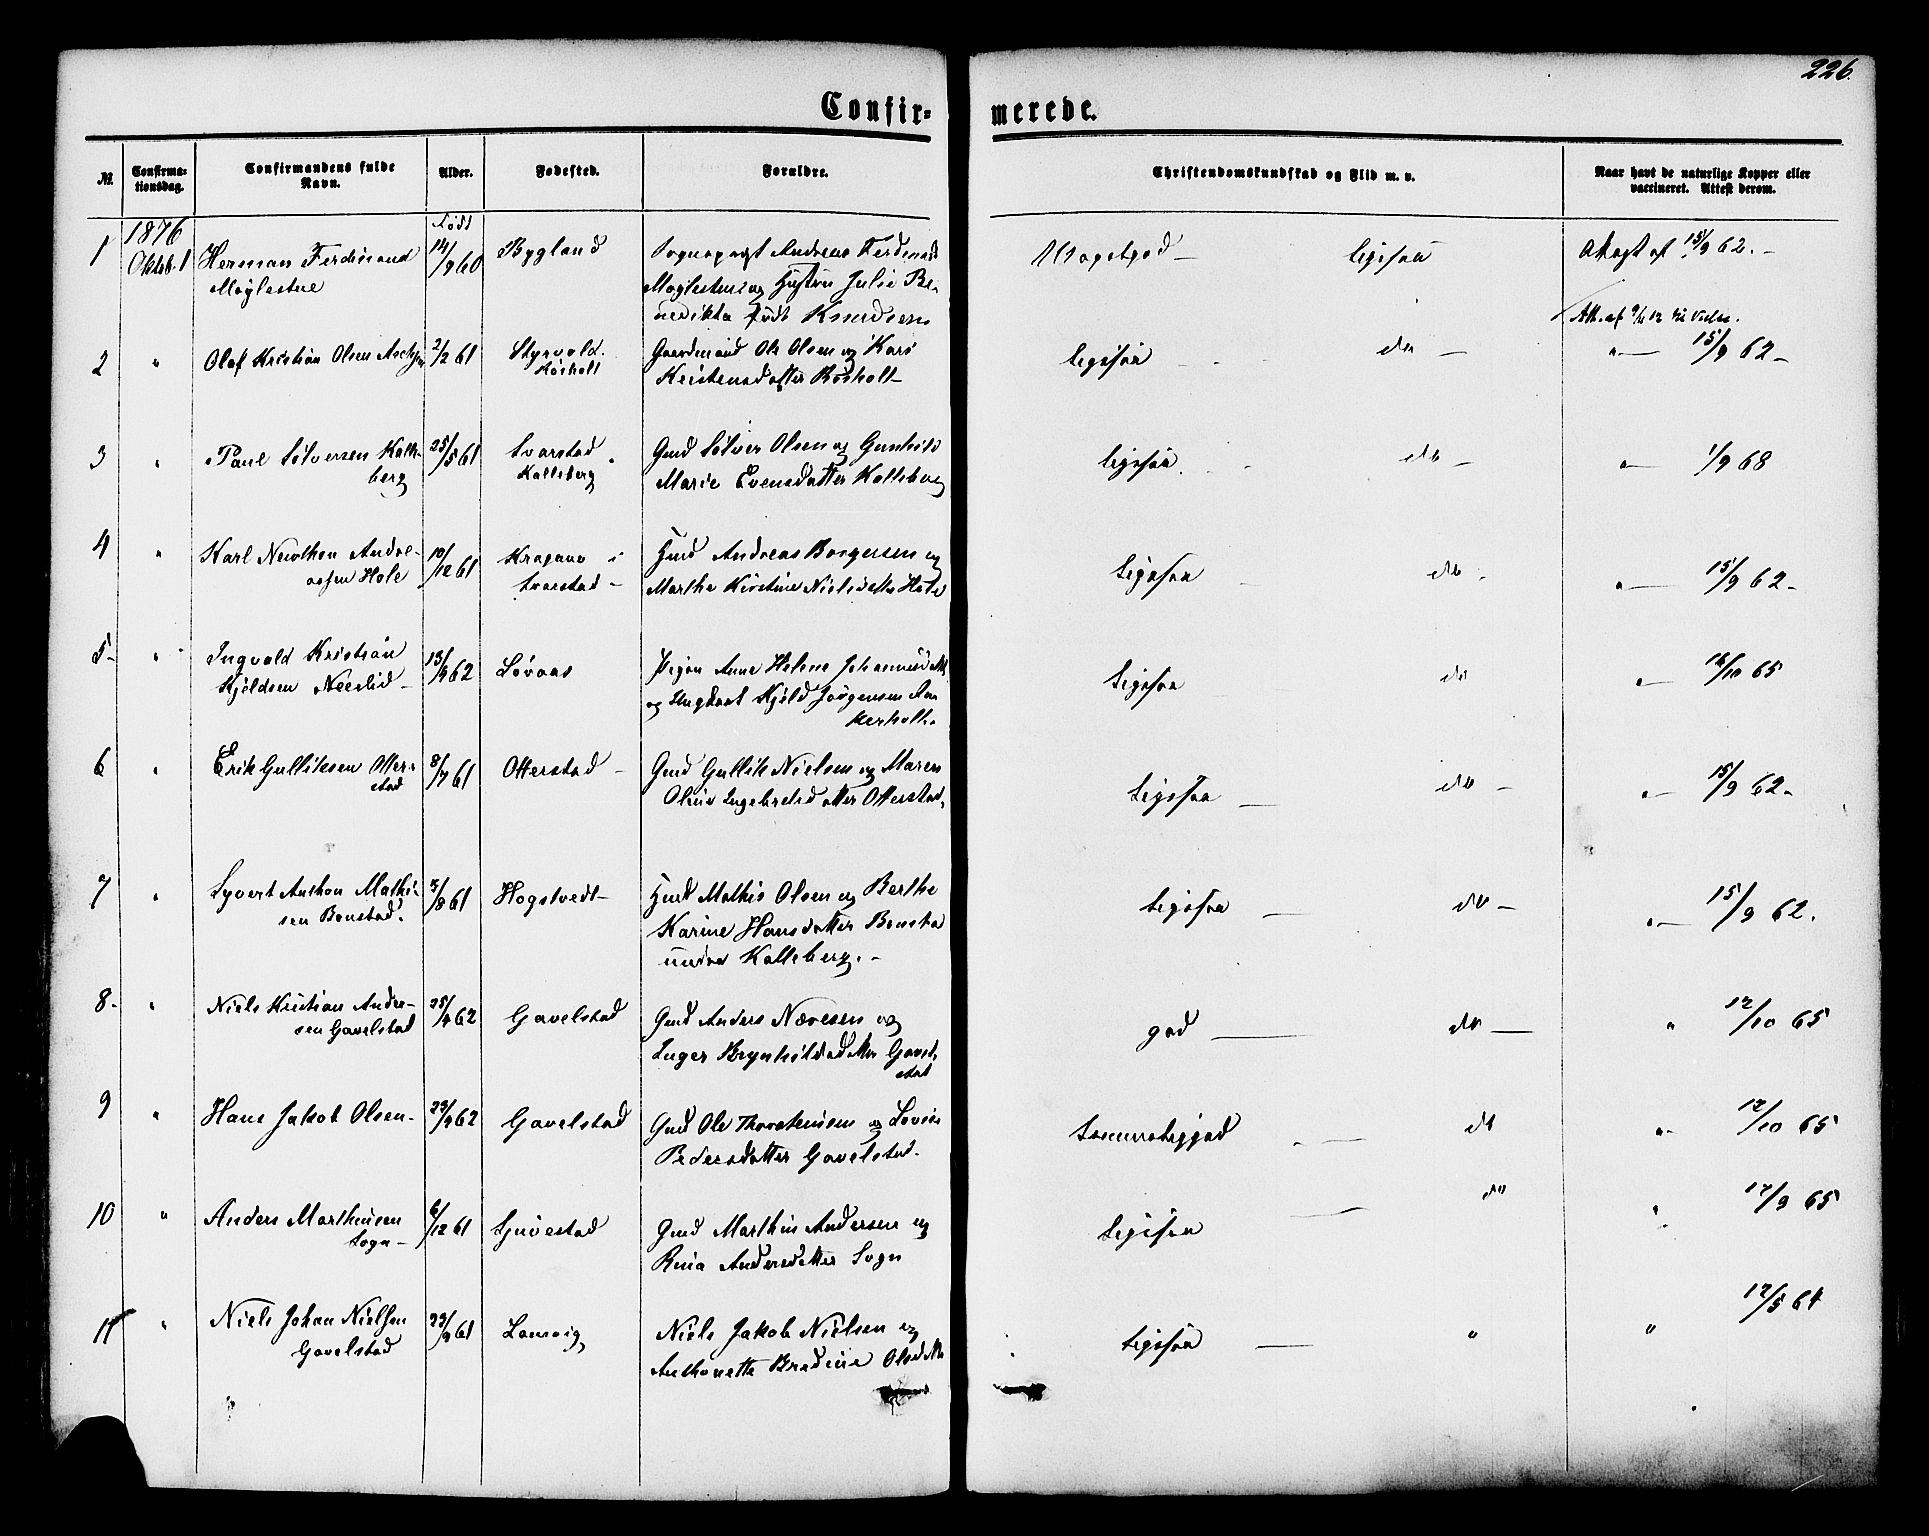 226.
Confir-
merede.
№
Confirma-
tionsdag.
Confirmandens fulde
Navn.
Alder.
Fødested.
Forældre.
Christendomskundskab og Flid m. v.
Naar havt de naturlige Kopper eller
vaccineret. Attest derom.
1876
Født
1
Oktob. 1
Herman Ferdinand
Møglestue
14/9 60
Bygland
Sogneprest Andreas Ferdinand
Møglestue og Hustru Julie Be-
nedikte født Knudsen
Meget god -
ligesaa
Attest af 15/9 62. -
2
"
Olaf Kristian Olsen
2/2 61
Styrvold.
Gaardmand Ole Olsen og Kari
Kristensdatter Bøsholt -
ligesaa
do -
" — 15/9 62 -
3
"
Paul Sølversen Kalle-
berg
25/5 61
Svarstad
Kalleberg
Gmd Sølver Olsen og Gunhild
Marie Evensdatter Kalleberg
ligesaa.
do -
" — 1/9 68
4
"
Karl Andre-
assen Hole
10/12 61
i
Svarstad -
Hmd Andreas Borgersen og
Marthe Kirstine Nielsdatter Hole
Ligesaa
do -
" — 15/9 62 -
5 -
"
Ingvald Kristian
Kjeldsen
13/9 62
Løvaas
Pigen Anne Helene
og Ungkarl Kjeld Jørgensen Aan
kerholt.
Ligesaa
do
" —
6
"
Erik Gulliksen Otter-
stad
8/7 61
Otterstad -
Gmd Gullik Nielsen og Maren
Oline Ingebretsdatter Otterstad,
Ligesaa —
do -
" — 15/9 62 -
7
"
Syvert Anthon Mathi-
sen Bonstad.
Hogstvedt -
Hmd Mathis Olsen og Berthe
Karine Hansdatter
under Kalleberg. -
Ligesaa —
do -
" — 15/9 62.
8 -
"
Niels Kristian Ander-
sen Gavelstad
25/4 62
Gavelstad
Gmd Anders Næresen og
Inger Brynhildsdatter Gavel-
stad
god —
do —
" 12/10 65
9
"
Hans Jakob Olsen -
Gavelstad
Gmd Ole Thorstensen og Lovise
Pedersdatter Gavelstad.
do
" - 12/10 65
10
"
Anders Marthinsen
Sogn -
6/12 61
Gmd Marthin Andersen og
Andersdatter Sogn
Ligesaa
do
"
11
"
Niels Johan Nielsen
Gavelstad
23/9 61
Niels Jakob Nielsen og
Anthonette Bredine
Ligesaa —
"
" 12/5 64